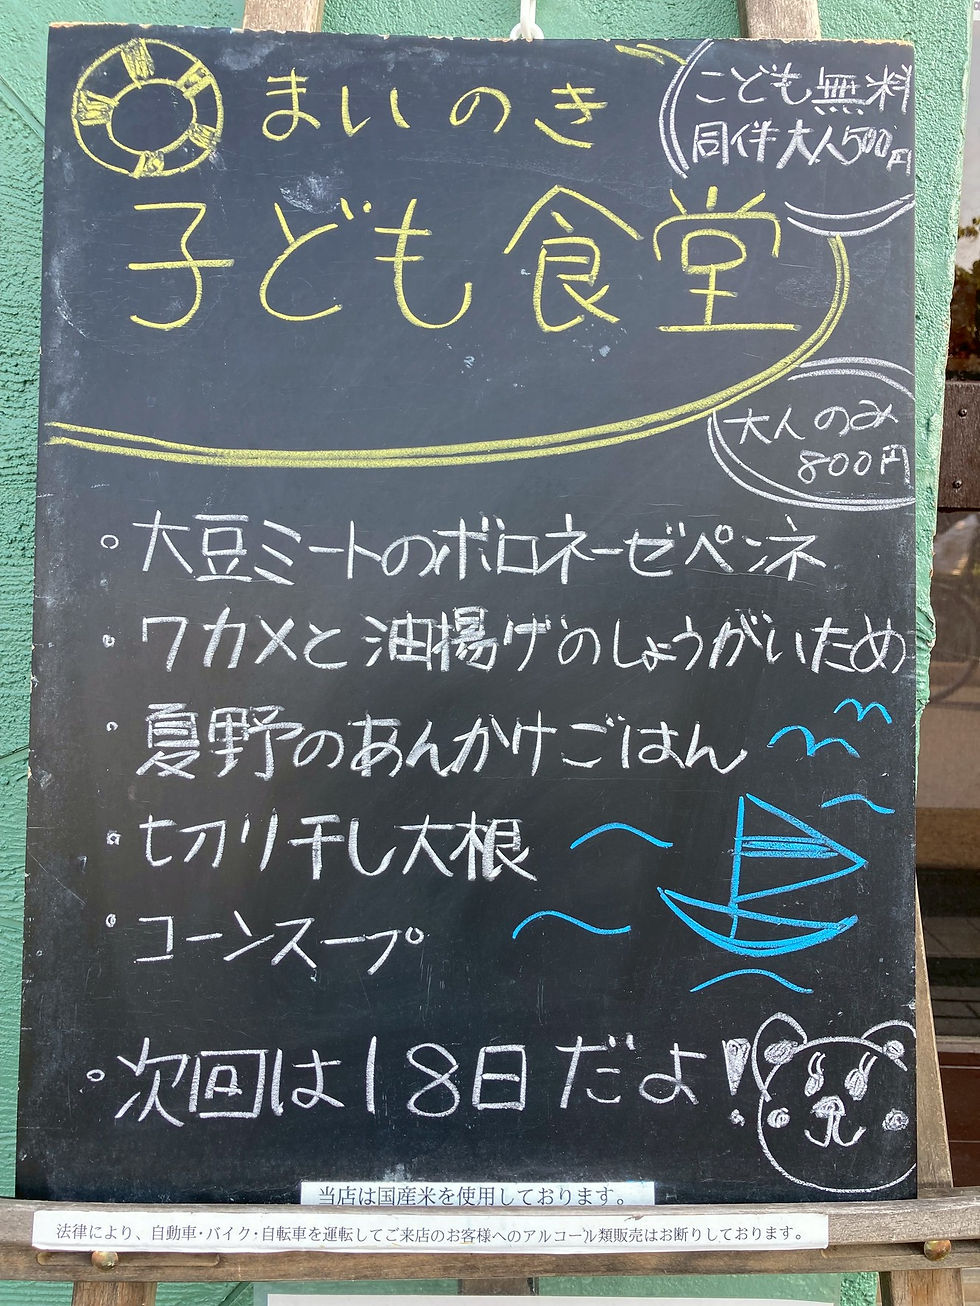 まいのき
こども無料
同伴大人500円
子ども食堂
大人のみ
800円
・大豆ミートのボロネーゼペンネ
・ワカメと油揚げのしょうがいため
・夏野のあんかけごはん
・切り干し大根
・コーンスープ
・次回は18日だよ!
当店は国産米を使用しております。
法律により、自動車・バイク・自転車を運転してご来店のお客様へのアルコール類販売はお断りしております。